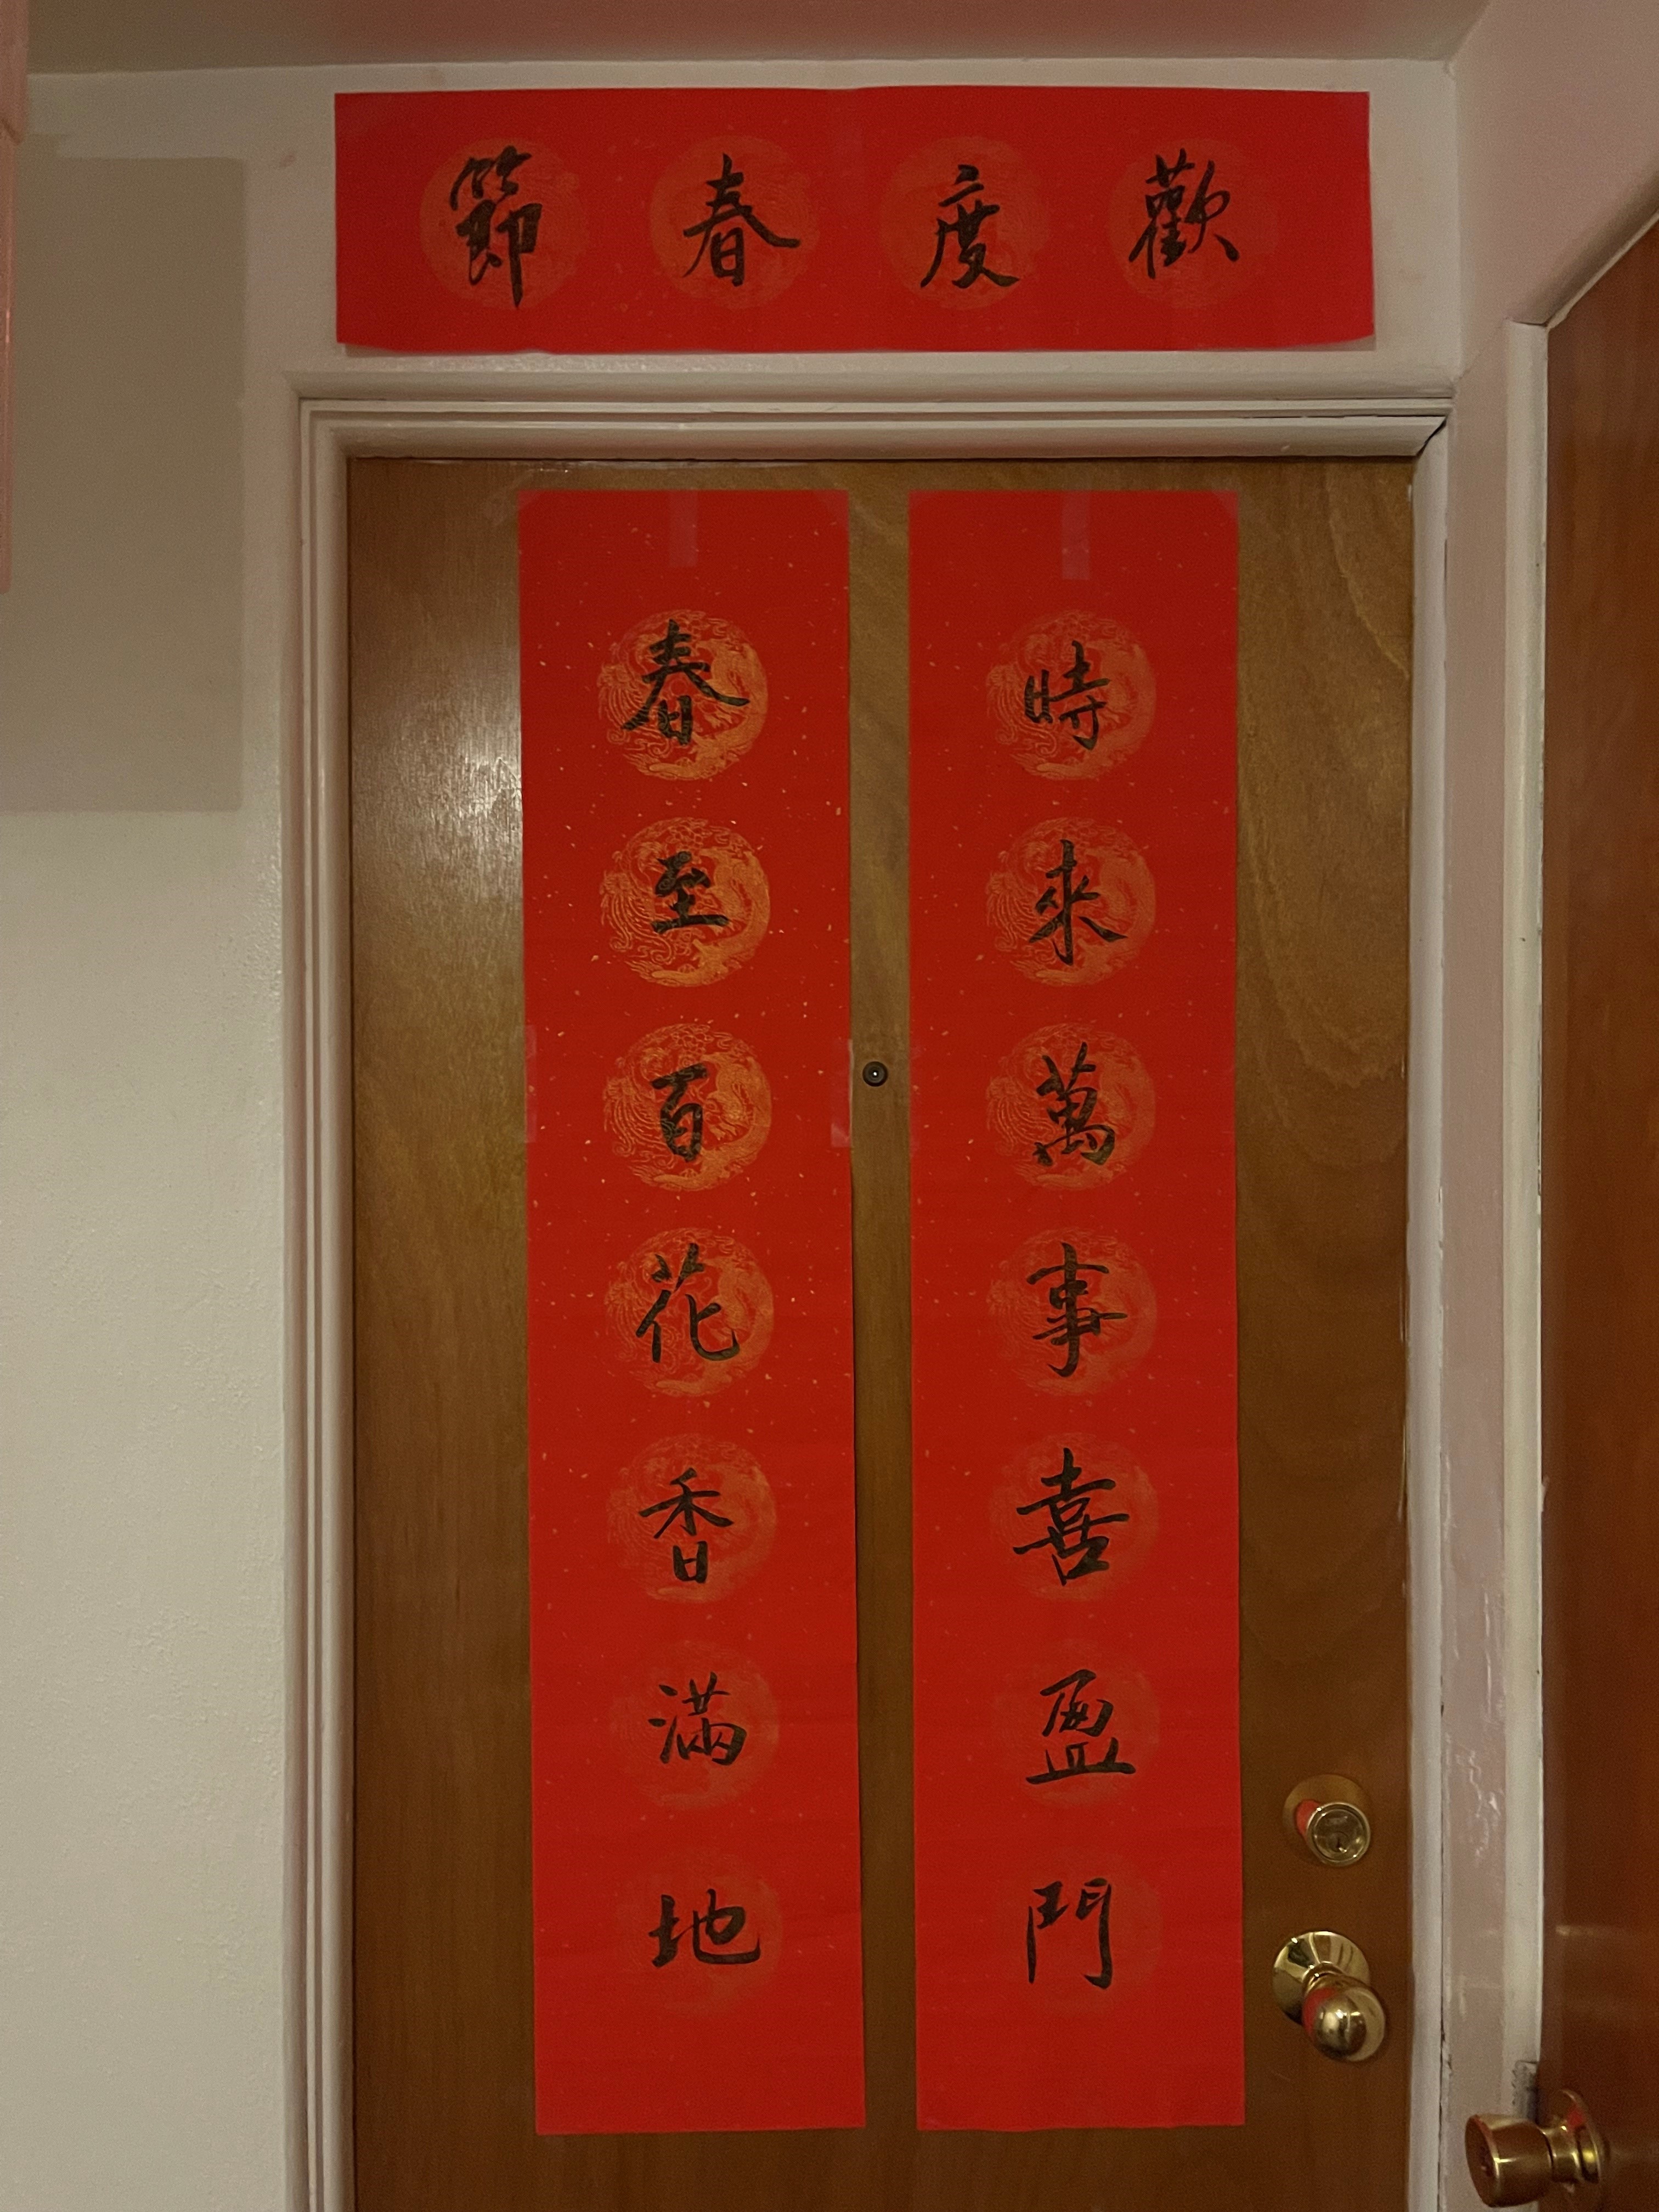 歡度春節
時來萬事喜盈門
春至百花香滿地